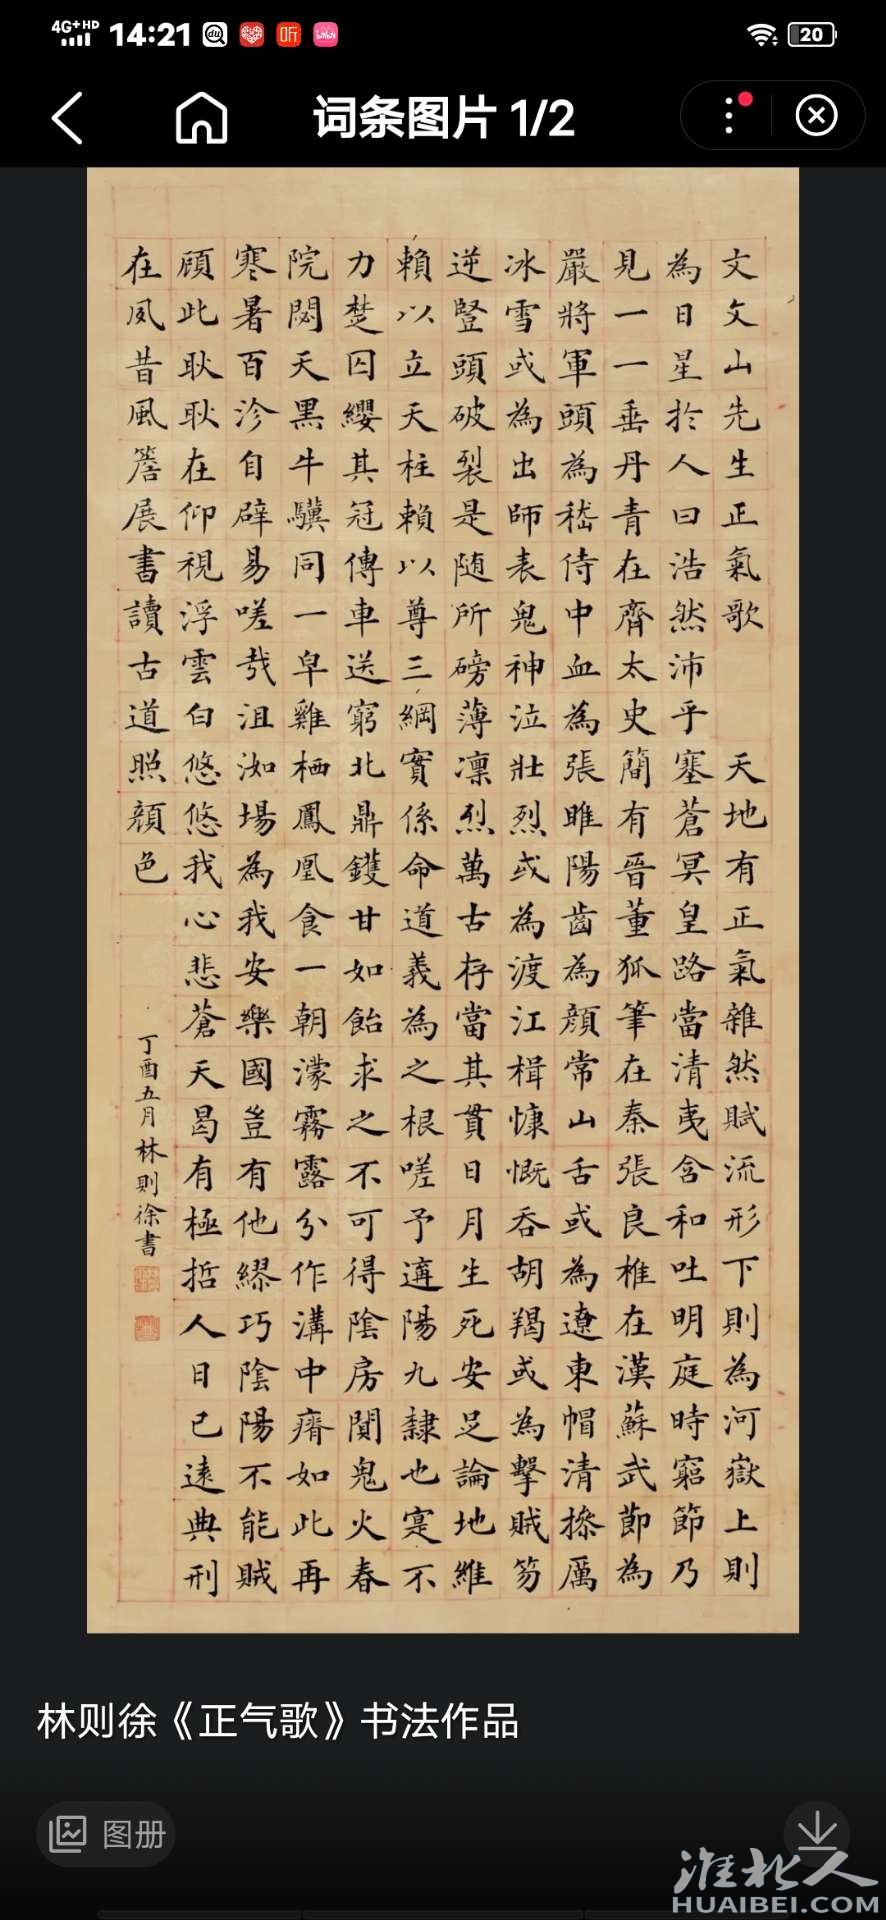 4G+HD 14:21 du 听 20
词条图片 1/2
文文山先生正氣歌 天地有正氣雜然賦流形下則為河嶽上則
為日星於人曰浩然沛乎塞蒼冥皇路當清夷含和吐明庭時窮節乃
見一一垂丹青在齊太史簡有晉董狐筆在秦張良椎在漢蘇武節為
嚴將軍頭為嵇侍中血為張睢陽齒為顏常山舌或為遼東帽清操厲
冰雪或為出師表鬼神泣壯烈或為渡江楫慷慨吞胡羯或為擊賊笏
逆豎頭破裂是随所磅薄凛烈萬古存當其貫日月生死安足論地維
賴以立天柱賴以尊三綱實係命道義為之根嗟予遘陽九隸也寔不
力楚囚纓其冠傳車送窮北鼎鑊甘如飴求之不可得陰房闃鬼火春
院閟天黑牛驥同一皁雞栖鳳凰食一朝濛霧露分作溝中瘠如此再
寒暑百沴自辟易嗟哉沮洳場為我安樂國豈有他繆巧陰陽不能賊
顧此耿耿在仰視浮雲白悠悠我心悲蒼天曷有極哲人日已遠典刑
在夙昔風簷展書讀古道照顏色
丁酉五月林則徐書
林则徐《正气歌》书法作品
图册
淮北人
HUAIBEI.COM